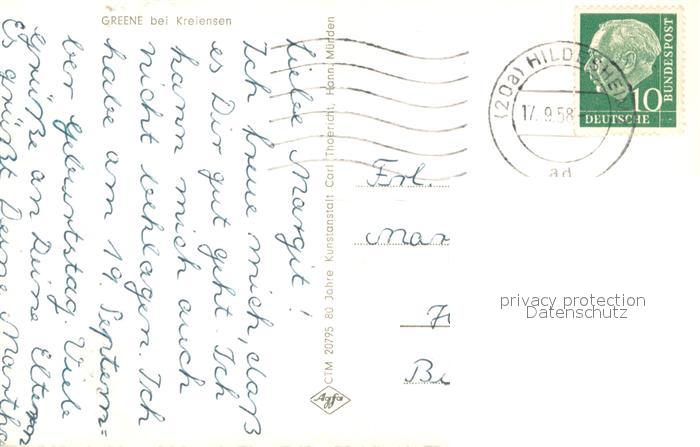 GREENE bei Kreiensen
Liebe Margit!
Ich freue mich, daß
es Dir gut geht. Ich
kann mich auch
nicht beklagen. Ich
habe am 19. Septem=
ber Geburtstag. Viele
Grüße an Deine Eltern
Es grüßt Deine Marthe
CTM 20795 80 Jahre Kunstanstalt Carl Thoericht, Hann. Münden
Agfa
(20a) HILDESHEIM
17.9.58
ad
10
DEUTSCHE
BUNDESPOST
Frl.
Mar
privacy protection
Datenschutz